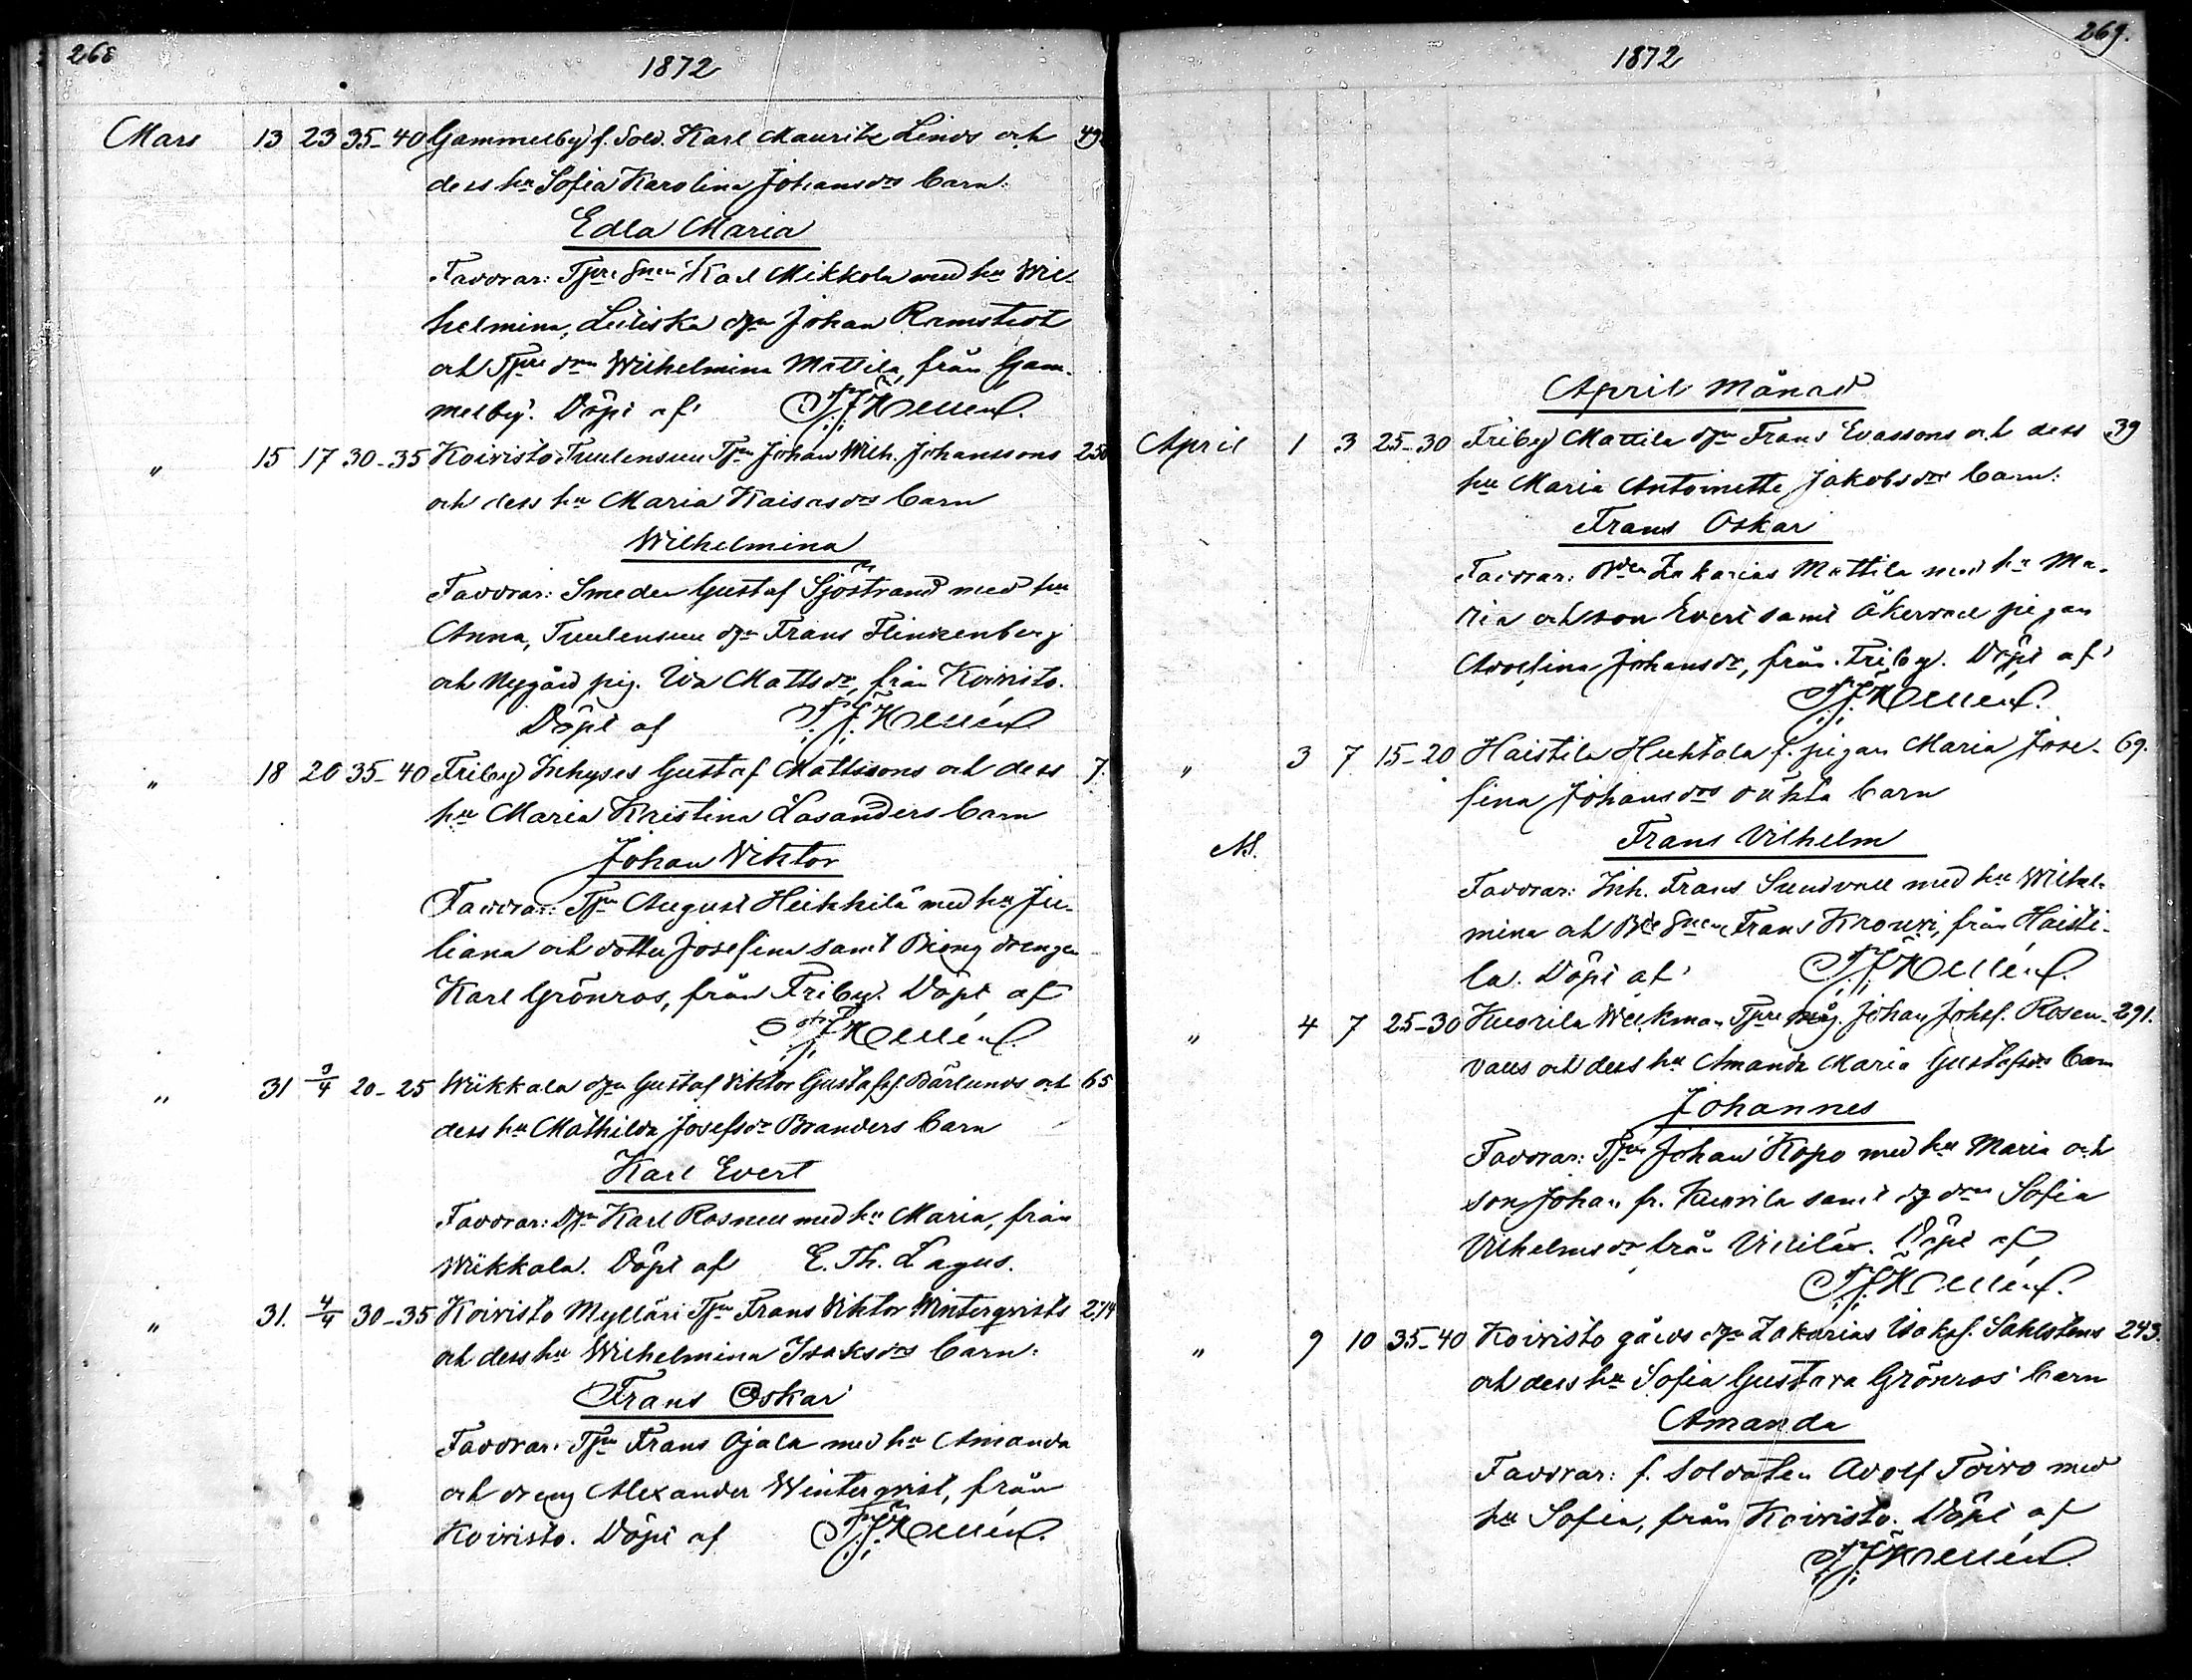 268
1872
Mars 13 23 35-40 Gammelby f. Sold. Karl Mauritz Linds och 49
dess hu Sofia Karolina Johansdrs barn:
Edla Maria
Faddrar: Karl Mikkola med hu Wil-
helmina, dgn Johan Ramstedt
och Wilhelmina Mattila, från Gam-
melby. Döpt af
" 15 17 30-35 Koivisto Tuulensuu Tpn Johan Wilh. Johanssons 250
och dess hu Maria Kaisasdrs barn
Wilhelmina
Faddrar: Smeden Gustaf Sjöstrand med hu
Anna, Tuulensuu dgn Frans
och Nygård pig. Ida Mattsdr, från Koivisto.
Döpt af
" 18 20 35-40 Friby Inhyses Gustaf Mattssons och dess 7.
hu Maria Kristina Lasanders barn
Johan Viktor
Faddrar: Tpn August Heikkilä med hu Ju-
liana och dotter Josefina samt drengen
Karl Grönroos, från Friby. Döpt af
" 31 3/4 20-25 Wiikkala dgn Gustaf Viktor Gustafsf. Bärlunds och 65
dess hu Mathilda Josefsdr Branders barn
Karl Evert
Faddrar: Dgn Karl Rosnell med hu Maria, från
Wiikkala. Döpt af E. Th. Lagus.
" 31. 4/4 30-35 Koivisto Mylläri Tpn Frans Viktor Winterqvists 274
och dess hu Wilhelmina Isaksdrs barn:
Frans Oskar
Faddrar: Tpn Frans Ojala med hu Amanda
och dreng Alexander Winterqvist, från
Koivisto. Döpt af
269.
1872
April Månad
April 1 3 25-30 Friby Mattila dgn Frans Evassons och dess 39
hu Maria Antoinette Jakobsdrs barn:
Frans Oskar
Faddrar: Zakarias Mattila med hu Ma-
ria och son Evert samt Åkervall pigan
Adolfina Johansdr, från Friby. Döpt af
" 3 7 15-20 Haistila Huhtala f. pigan Maria Jose- 69.
fina Johansdrs oäkta barn
Frans Vilhelm
Faddrar: Inh. Frans Sundvall med hu Wilhel-
mina och Frans Krouvi, från Haisti-
la. Döpt af
" 4 7 25-30 Kuorila Weikman Johan Johsf. Rosen- 291.
valls och dess hu Amanda Maria Gustafsdrs barn
Johannes
Faddrar: Tpn Johan Kopo med hu Maria och
son Johan fr. Kuorila samt Sofia
Vilhelmsdr från Döpt af
" 9 10 35-40 Koivisto gårds dgn Zakarias Isaksf. Sahlstens 243.
och dess hu Sofia Gustava Grönroos barn
Amanda
Faddrar: f. Soldaten Adolf Toivo med
hu Sofia, från Koivisto. Döpt af